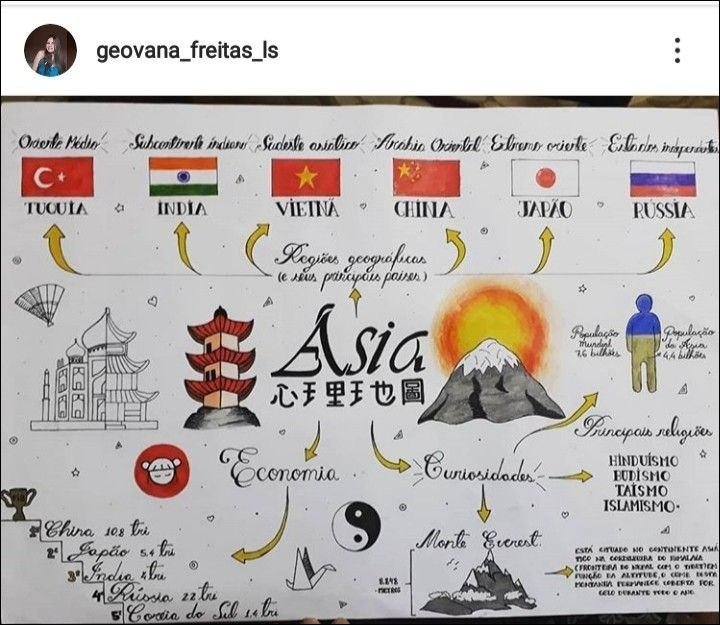 geovana_freitas_ls
Oriente Médio Subcontinente indiano Sudeste asiático Oriental Extremo oriente Estados independentes
TUQUIA ÍNDIA VIETNÃ CHINA JAPÃO RÚSSIA
Regiões geográficas
(e seus principais países)
Ásia
心理地圖
População
mundial
7.6 bilhões
População
da Ásia
4,4 bilhões
Economia
Curiosidades
Principais religiões
HINDUÍSMO
BUDISMO
TAÍSMO
ISLAMISMO.
1º China 10.8 tri
2º Japão 5.4 tri
3º Índia tri
4º Rússia 2.2 tri
5º Coréia do Sul 1.4 tri
Monte Everest.
8.848
METROS
ESTÁ SITUADO NO CONTINENTE ASIÁ
TICO NA CORDILHEIRA DO HIMALAIA
(FRONTEIRA DO NEPAL COM O TIBET) EM
FUNÇÃO DA ALTITUDE, O CUME DESTA
MONTANHA PERMANECE COBERTA POR
GELO DURANTE TODO O ANO.